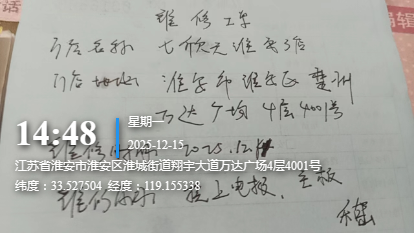 维修工单
门店名称 七欣天淮安店
门店地址 淮安市淮安区楚州
万达广场 4层4001号
14:48
星期一
2025-12-15
2025.12.
江苏省淮安市淮安区淮城街道翔宇大道万达广场4层4001号
纬度：33.527504 经度：119.155338
维修内容 晚上电报、主板